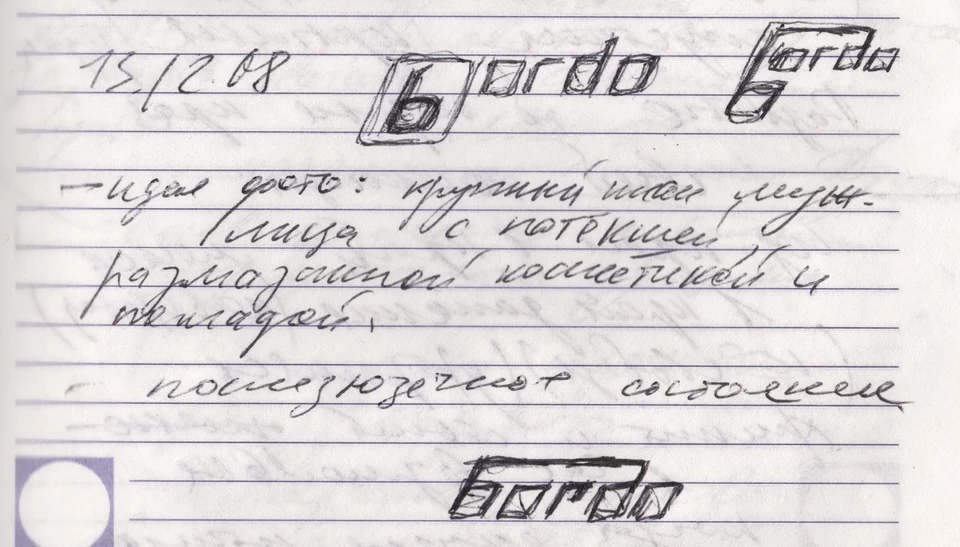 13/12.08 bordo bordo
– идея фото: крупный план жен.
лица с потекшей,
размазанной косметикой и
помадой.
– состояние
bordo